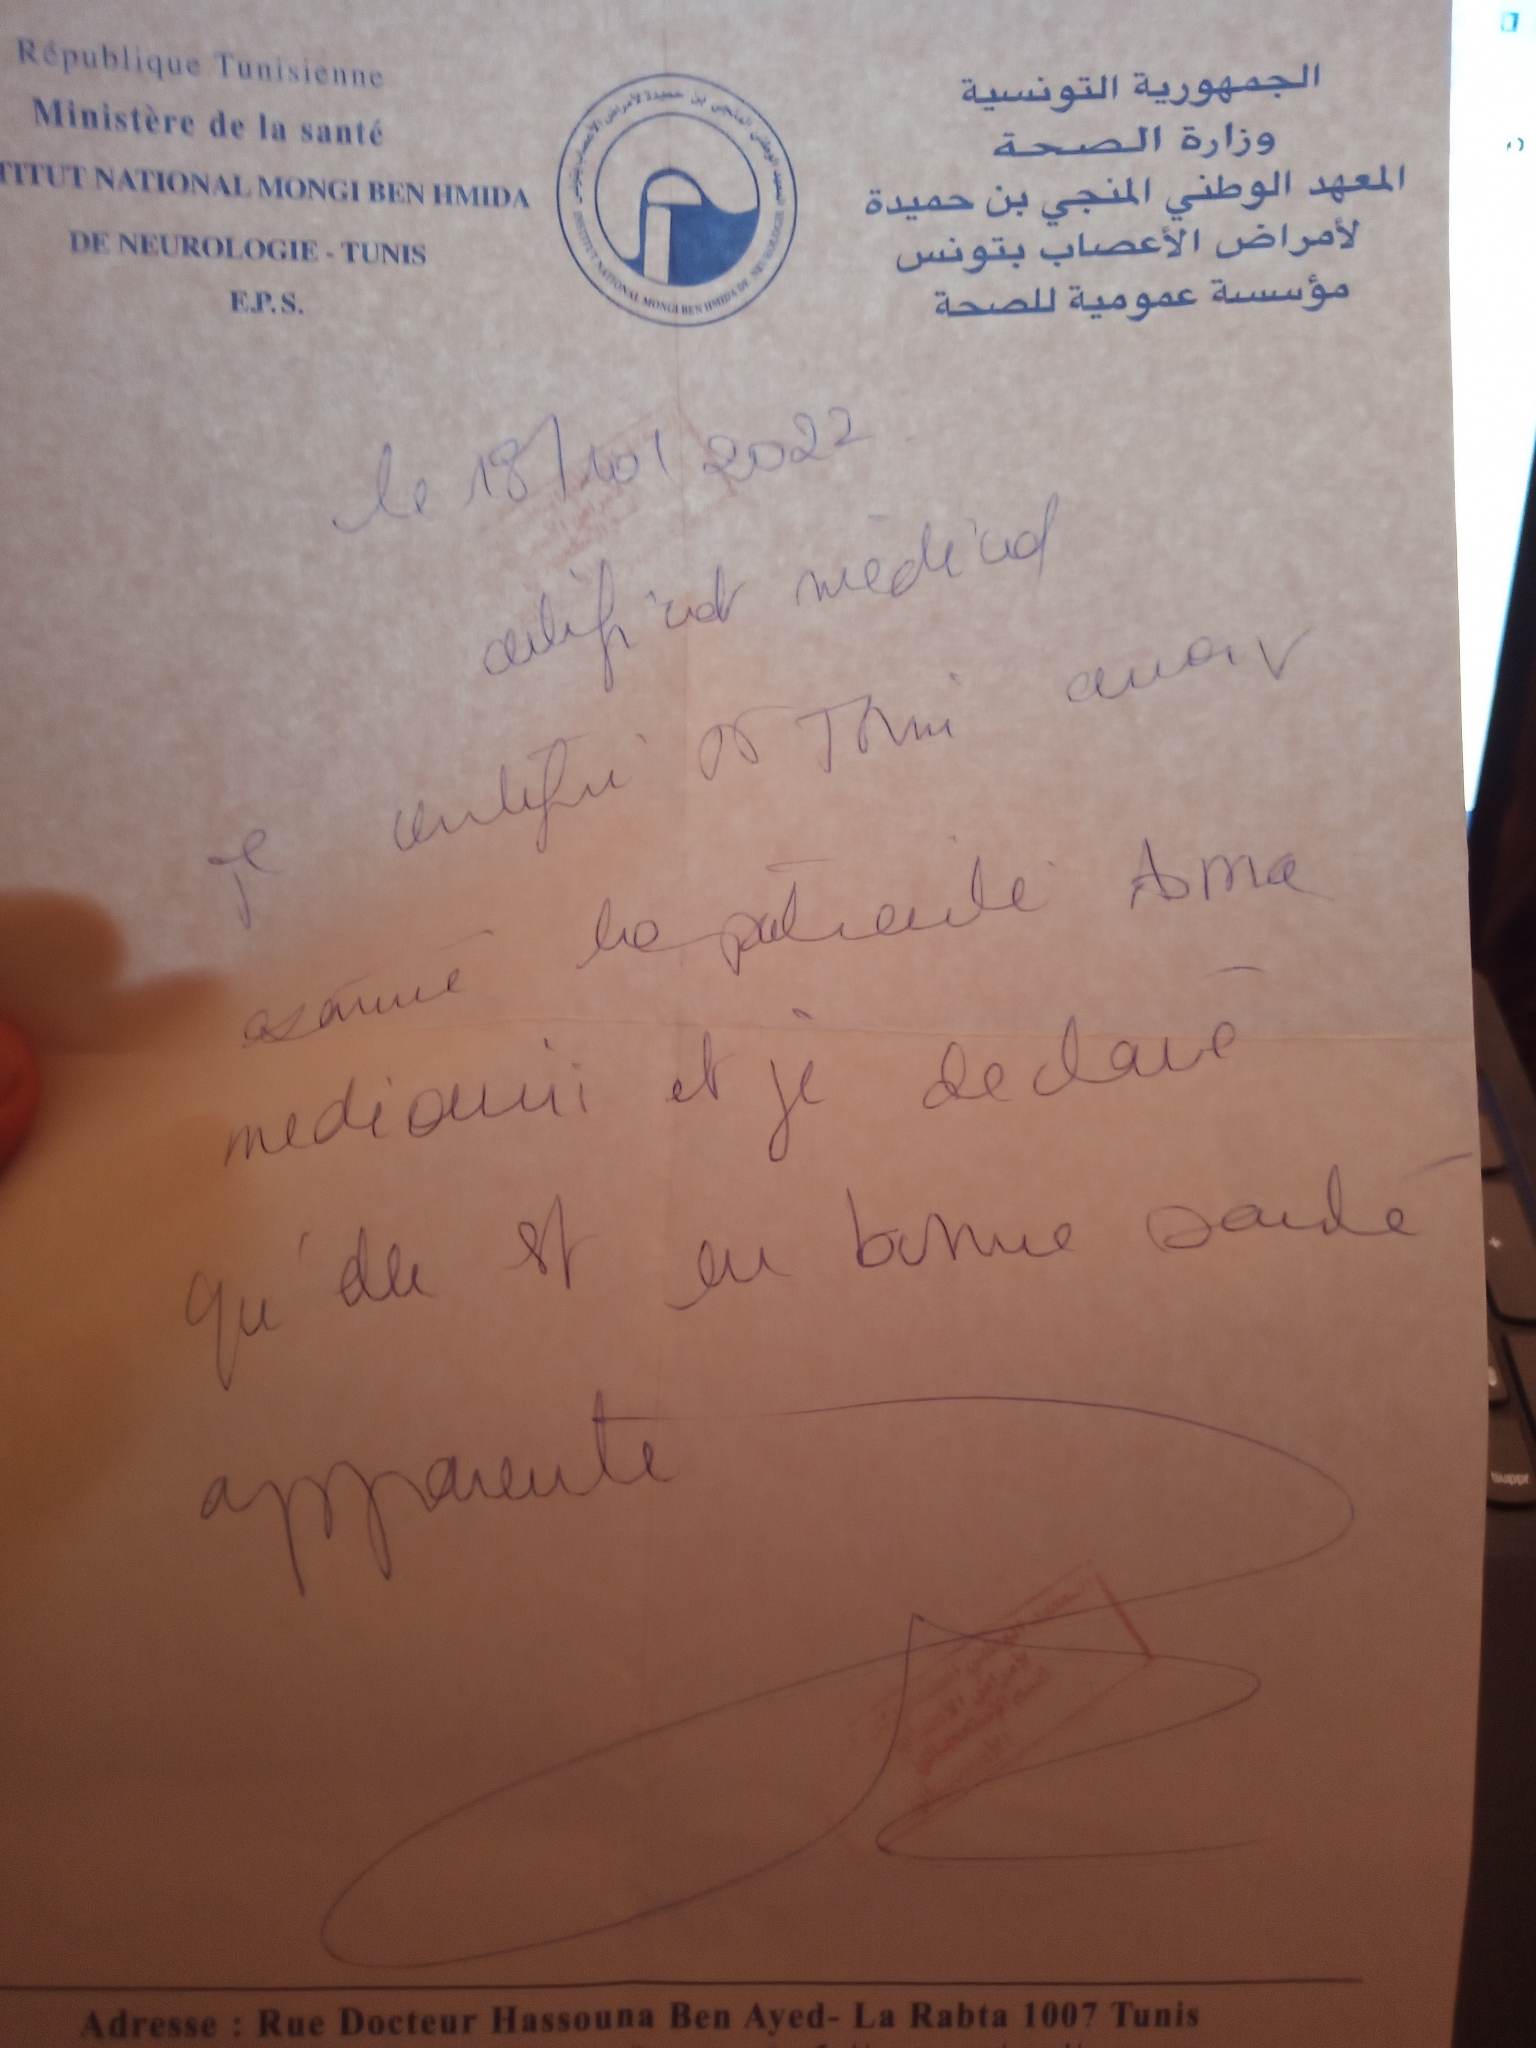 République Tunisienne
Ministère de la santé
TITUT NATIONAL MONGI BEN HMIDA
DE NEUROLOGIE - TUNIS
E.P.S.
المعهد الوطني المنجي بن حميدة لأمراض الأعصاب بتونس
INSTITUT NATIONAL MONGI BEN HMIDA DE NEUROLOGIE
الجمهورية التونسية
وزارة الصحة
المعهد الوطني المنجي بن حميدة
لأمراض الأعصاب بتونس
مؤسسة عمومية للصحة
le 18/10/2022
certificat médical
Je certifie Dr avoir
examiné la patiente Asma
et je déclare
qu'elle est en bonne santé
apparente
Adresse : Rue Docteur Hassouna Ben Ayed- La Rabta 1007 Tunis